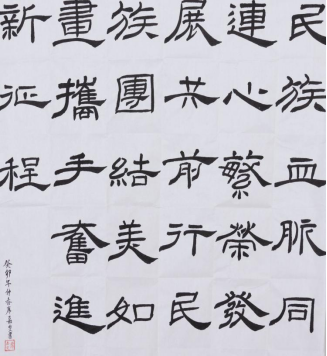 民族血脈同
連心繁榮發
展共前行民
族團結美如
畫攜手奮進
新征程
癸卯